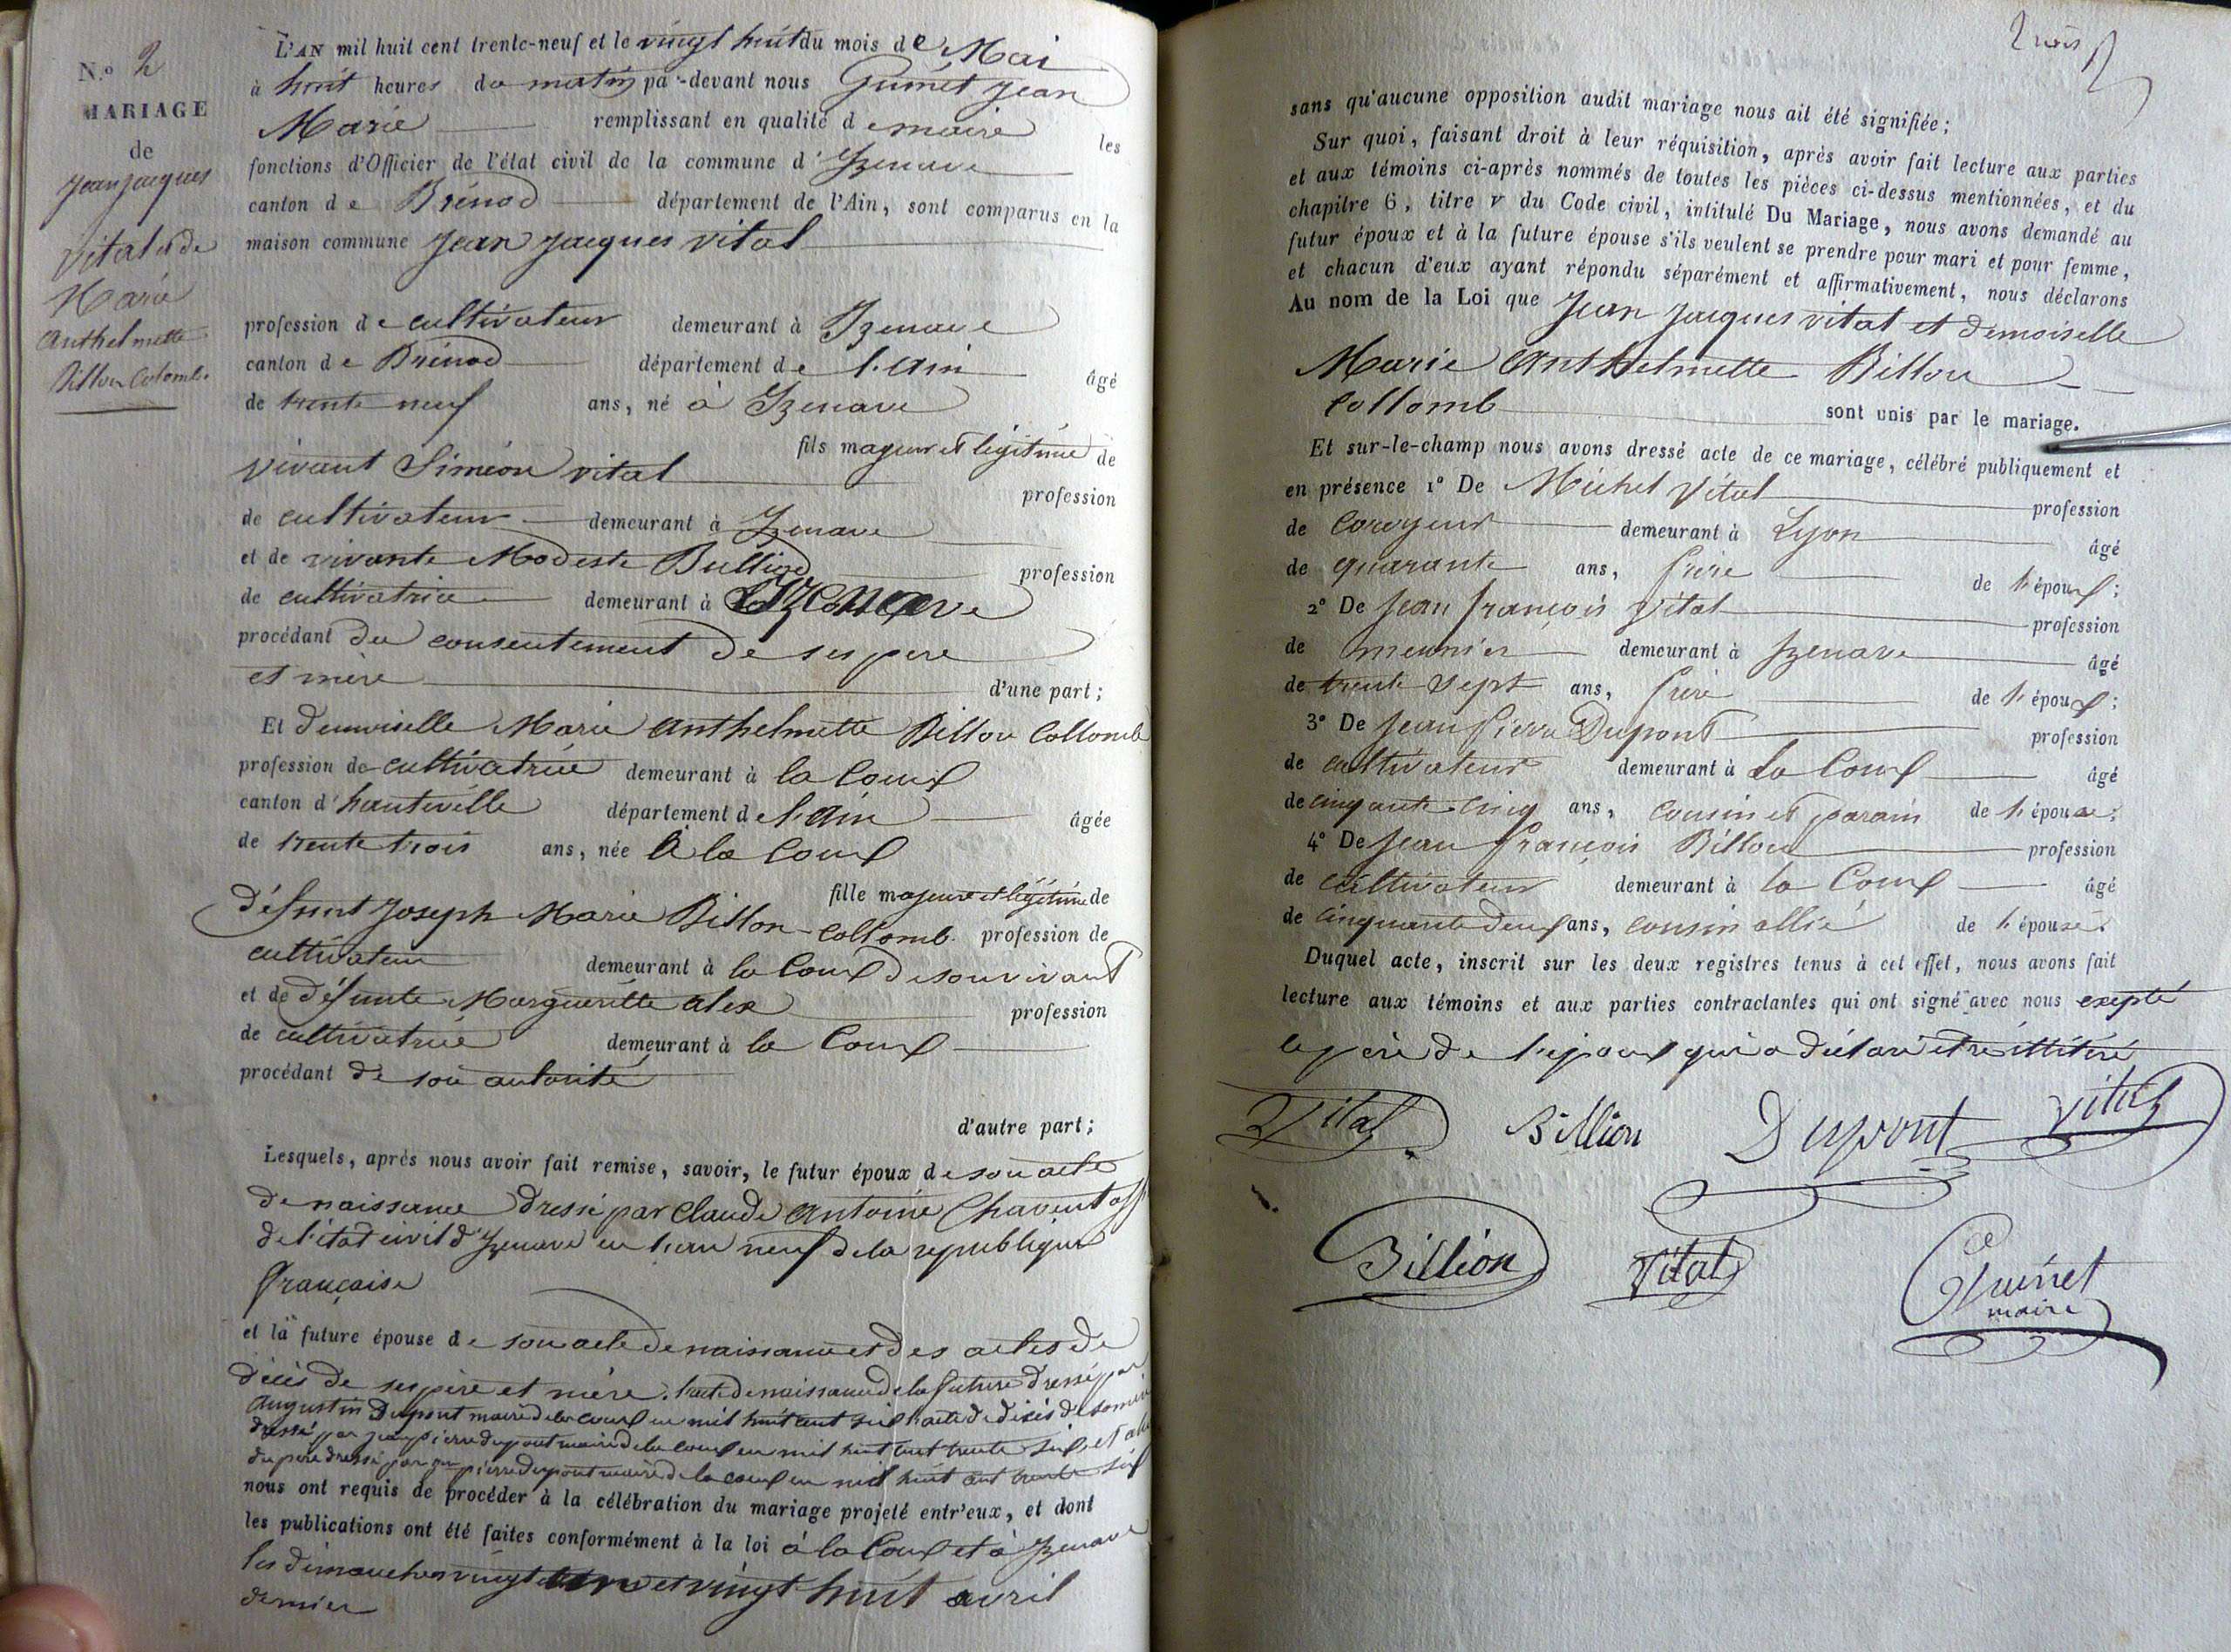 N.° 2
MARIAGE
de
Jean Jacques
Vital et de
Marie
Anthelmette
Billon Colomb.
L'AN mil huit cent trente-neuf et le vingt huit du mois de Mai
à huit heures du matin par-devant nous Guinet Jean
Marie remplissant en qualité de maire les
fonctions d'Officier de l'état civil de la commune d'Izenave
canton de Brénod département de l'Ain, sont comparus en la
maison commune Jean Jacques vital
profession de cultivateur demeurant à Izenave
canton de Brénod département de l'Ain âgé
de trente neuf ans, né à Izenave
fils majeur et légitime de
vivant Siméon vital profession
de cultivateur demeurant à Izenave
et de vivante Modeste Bulliod profession
de cultivatrice demeurant à Izenave
procédant du consentement de ses pere
et mère d'une part;
Et demoiselle Marie anthelmette Billon Collomb
profession de cultivatrice demeurant à la Coux
canton d'hauteville département de l'Ain âgée
de trente trois ans, née à la Coux
fille majeure et légitime de
défunt Joseph Marie Billon-Collomb profession de
cultivateur demeurant à la Coux de son vivant
et de défunte Margueritte alex profession
de cultivatrice demeurant à la Coux
procédant de son autorité
d'autre part;
Lesquels, après nous avoir fait remise, savoir, le futur époux de son acte
de naissance dressé par Claude Antoine Chavent off
de l'état civil d'Izenave en l'an neuf de la republique
française
et la future épouse de son acte de naissance et des actes de
décès de ses père et mère. l'acte de naissance de la future dressé par
Augustin Dupont maire de la coux en mil huit cent six l'acte de décès de sa mère
dressé par jean pierre dupont maire de la coux en mil huit cent trente six, et celui
du père dressé par jean pierre dupont maire de la coux en mil huit cent trente six
nous ont requis de procéder à la célébration du mariage projeté entr'eux, et dont
les publications ont été faites conformément à la loi à la Coux et à Izenave
les dimanches vingt et un et vingt huit avril
dernier
sans qu'aucune opposition audit mariage nous ait été signifiée;
Sur quoi, faisant droit à leur réquisition, après avoir fait lecture aux parties
et aux témoins ci-après nommés de toutes les pièces ci-dessus mentionnées, et du
chapitre 6, titre v du Code civil, intitulé Du Mariage, nous avons demandé au
futur époux et à la future épouse s'ils veulent se prendre pour mari et pour femme,
et chacun d'eux ayant répondu séparément et affirmativement, nous déclarons
Au nom de la Loi que Jean Jacques vital et demoiselle
Marie Anthelmette Billon
Collomb sont unis par le mariage.
Et sur-le-champ nous avons dressé acte de ce mariage, célébré publiquement et
en présence 1° De Michel Vital profession
de coroyeur demeurant à Lyon âgé
de quarante ans, frère de l'époux;
2° De Jean françois Vital profession
de meunier demeurant à Izenave âgé
de trente sept ans, frère de l'époux;
3° De Jean Pierre Dupont profession
de cultivateur demeurant à La Coux âgé
de cinquante cinq ans, cousin et parain de l'épouse;
4° De Jean françois Billon profession
de cultivateur demeurant à la Coux âgé
de cinquante deux ans, cousin allié de l'épouse.
Duquel acte, inscrit sur les deux registres tenus à cet effet, nous avons fait
lecture aux témoins et aux parties contractantes qui ont signé avec nous exepté
le père de l'époux qui a déclaré être illitéré
Vital Billion Dupont Vital
Billion Vital Guinet
maire